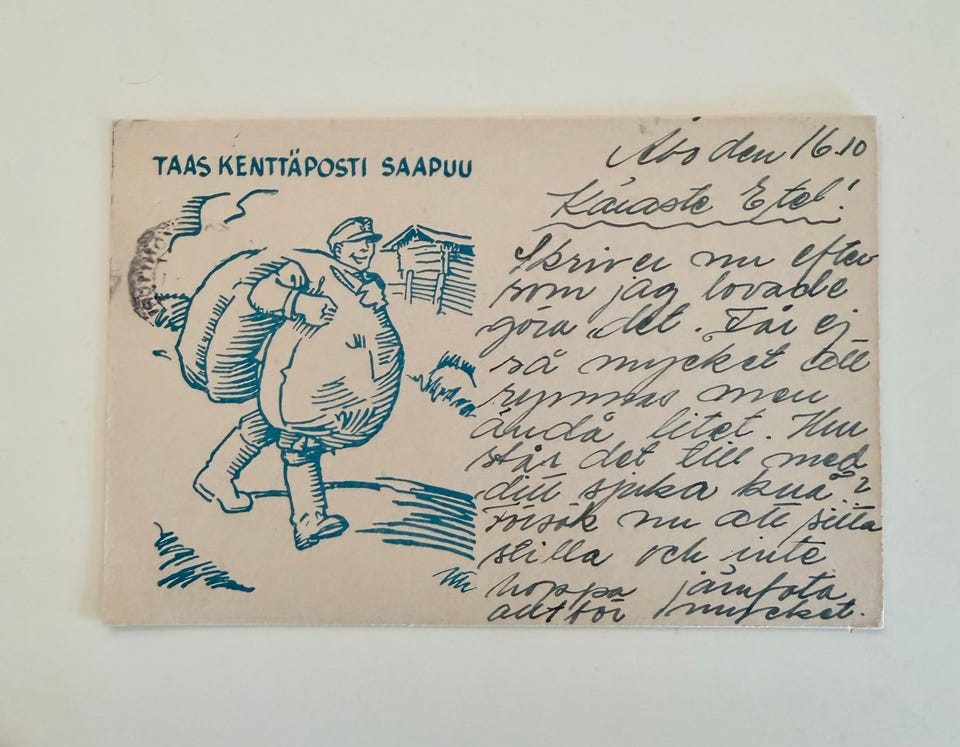 TAAS KENTTÄPOSTI SAAPUU
Åbo den 16.10
Käraste Etel!
Skriver nu efter
som jag lovade
göra det. Får ej
så mycket till
rymmas men
ändå litet. Hur
står det till med
ditt sjuka knä?
Försök nu att sitta
stilla och inte
hoppa jämfota
allt för mycket.